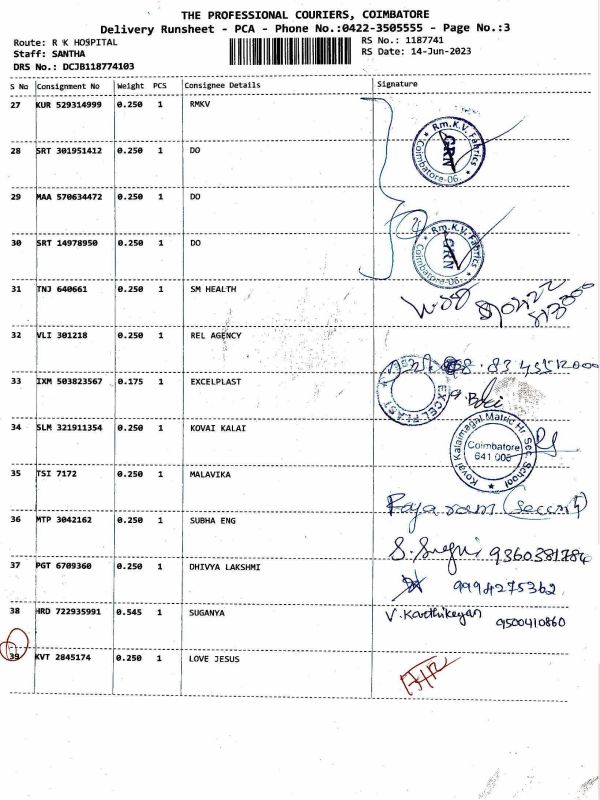 THE PROFESSIONAL COURIERS, COIMBATORE
Delivery Runsheet - PCA - Phone No.:0422-3505555 - Page No.:3
Route: R K HOSPITAL
RS No.: 1187741
Staff: SANTHA
RS Date: 14-Jun-2023
DRS No.: DCJB118774103
S No Consignment No Weight PCS Consignee Details Signature
27 KUR 529314999 0.250 1 RMKV
Rm.K.V. Fabrics
GRN
Coimbatore-06.
28 SRT 301951412 0.250 1 DO
29 MAA 570634472 0.250 1 DO
30 SRT 14978950 0.250 1 DO
Rm.K.V. Fabrics
GRN
Coimbatore-06.
31 TNJ 640661 0.250 1 SM HEALTH
32 VLI 301218 0.250 1 REL AGENCY
33 IXM 503823567 0.175 1 EXCELPLAST
EXCEL PLAST
34 SLM 321911354 0.250 1 KOVAI KALAI
Kovai Kalaimagal Matric Hr. Sec. School
Coimbatore
641 008
35 TSI 7172 0.250 1 MALAVIKA
Raja ram (Security)
36 MTP 3042162 0.250 1 SUBHA ENG
9360381784
37 PGT 6709360 0.250 1 DHIVYA LAKSHMI
9994275362
38 HRD 722935991 0.545 1 SUGANYA
V. Karthikeyan 9500410860
39 KVT 2845174 0.250 1 LOVE JESUS